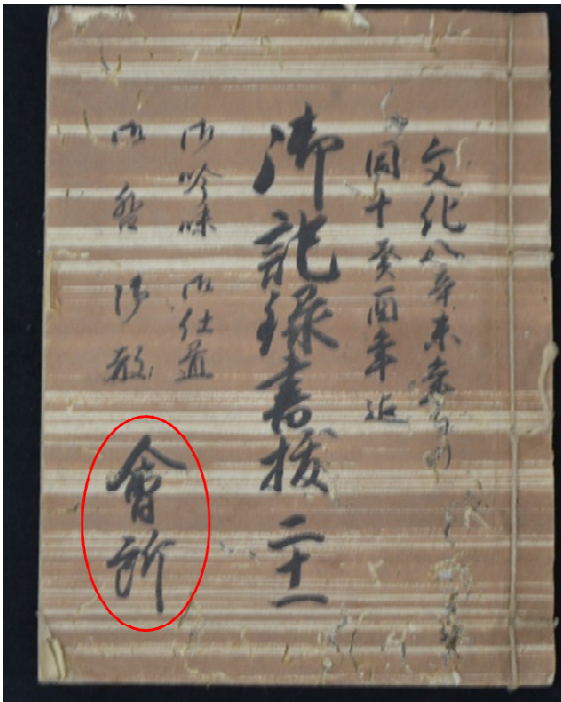 文化八辛未年
同十癸酉年迄
御記録書抜 二十一
御吟味 御仕置
御咎 御赦
會所